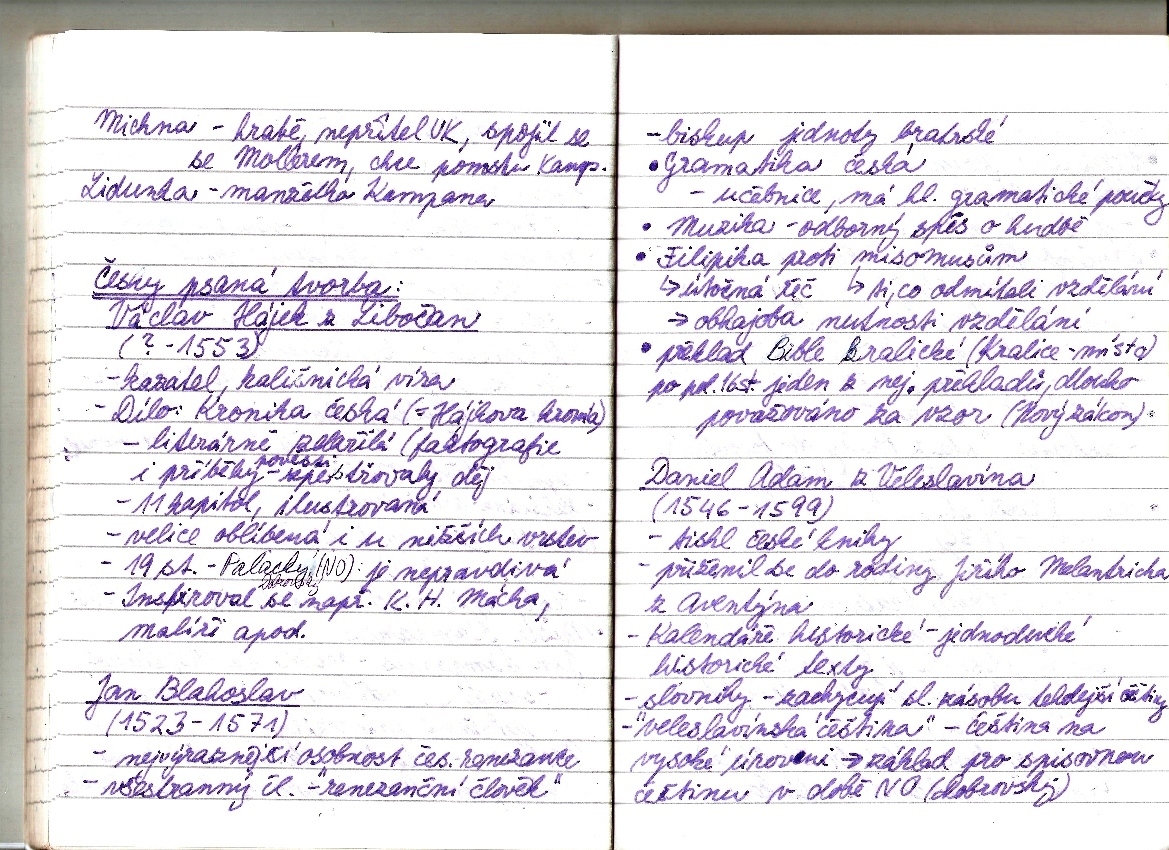 Michna - hrabě, nepřítel UK, spojil se
se Mollerem, chce pomstu Kamp.
Lidunka - manželka Kampana
Česky psaná tvorba:
Václav Hájek z Libočan
(? - 1553)
- kazatel, kališnická víra
- Dílo: Kronika česká (= Hájkova kronika)
- literárně zdařilá (faktografie
i příběhy pověsti - zpestřovaly děj
- 11 kapitol, ilustrovaná
- velice oblíbená i u nižších vrstev
- 19 st. - Palacký (NO): je nepravdivá
Dobrovský
- Inspiroval se např. K. H. Mácha,
malíři apod.
Jan Blahoslav
(1523 - 1571)
- nejvýraznější osobnost čes. renezance
- všestranný čl. - "renezanční člověk"
- biskup jednoty bratrské
• Gramatika česká
- učebnice, má hl. gramatické poučky
• Muzika - odborný spis o hudbě
• Filipika proti misomusům
↳ útočná řeč ↳ ti, co odmítali vzdělání
→ obhajoba nutnosti vzdělání
• překlad Bible kralické (Kralice - místo)
po pol. 16st. jeden z nej. překladů, dlouho
považováno za vzor (Nový zákon)
Daniel Adam z Veleslavína
(1546 - 1599)
- tiskl české knihy
- přiženil se do rodiny Jiřího Melantricha
z Aventýna
- Kalendáře historické - jednoduché
historické texty
- slovníky - zachycují sl. zásobu tehdejší češtiny
- "veleslavínská čeština" - čeština na
vysoké úrovni → základ pro spisovnou
češtinu v době NO (Dobrovský)